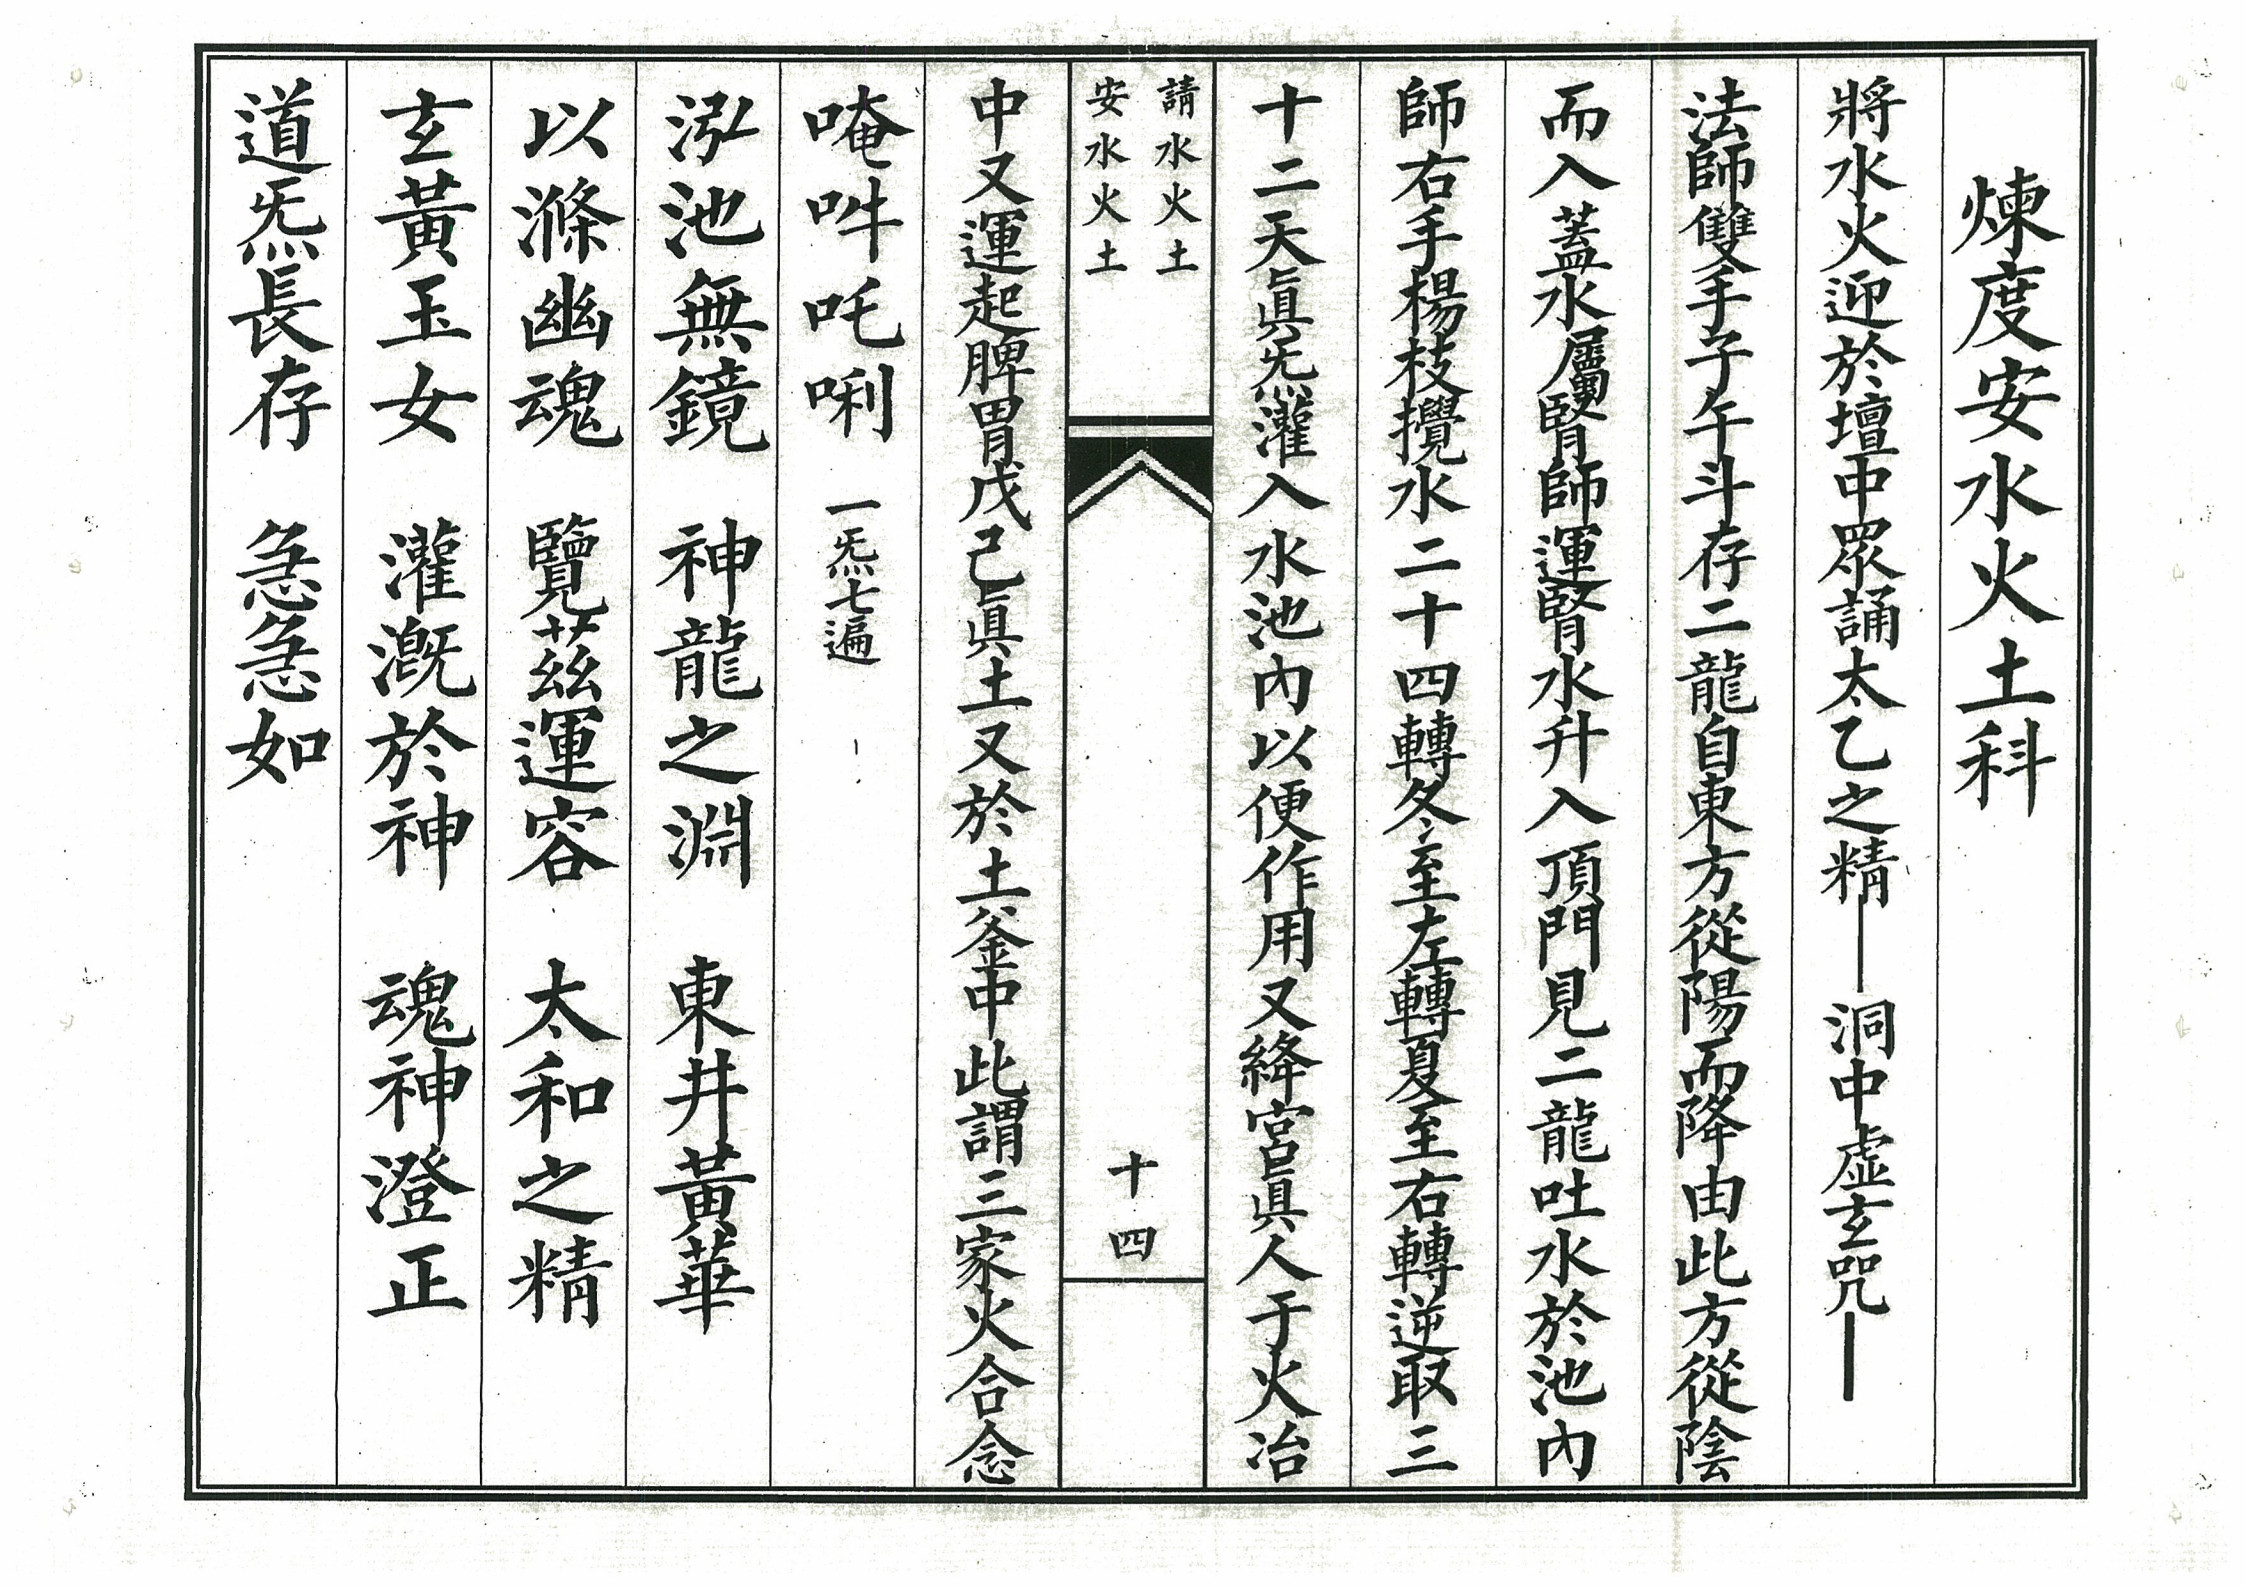 煉度安水火土科
將水火迎於壇中眾誦太乙之精｜洞中虛玄咒｜
法師雙手子午斗存二龍自東方從陽而降由此方從陰
而入蓋水屬腎師運腎水升入頂門見二龍吐水於池內
師右手楊枝攪水二十四轉冬至左轉夏至右轉逆取三
十二天眞炁灌入水池內以便作用又絳宮眞人于火冶
請水火土
安水火土
十四
中又運起脾胃戊己眞土又於土釜中此謂三家火合念
唵吽吒唎 一炁七遍
泓池無鏡 神龍之淵 東井黃華
以滌幽魂 覽茲運容 太和之精
玄黃玉女 灌溉於神 魂神澄正
道炁長存 急急如